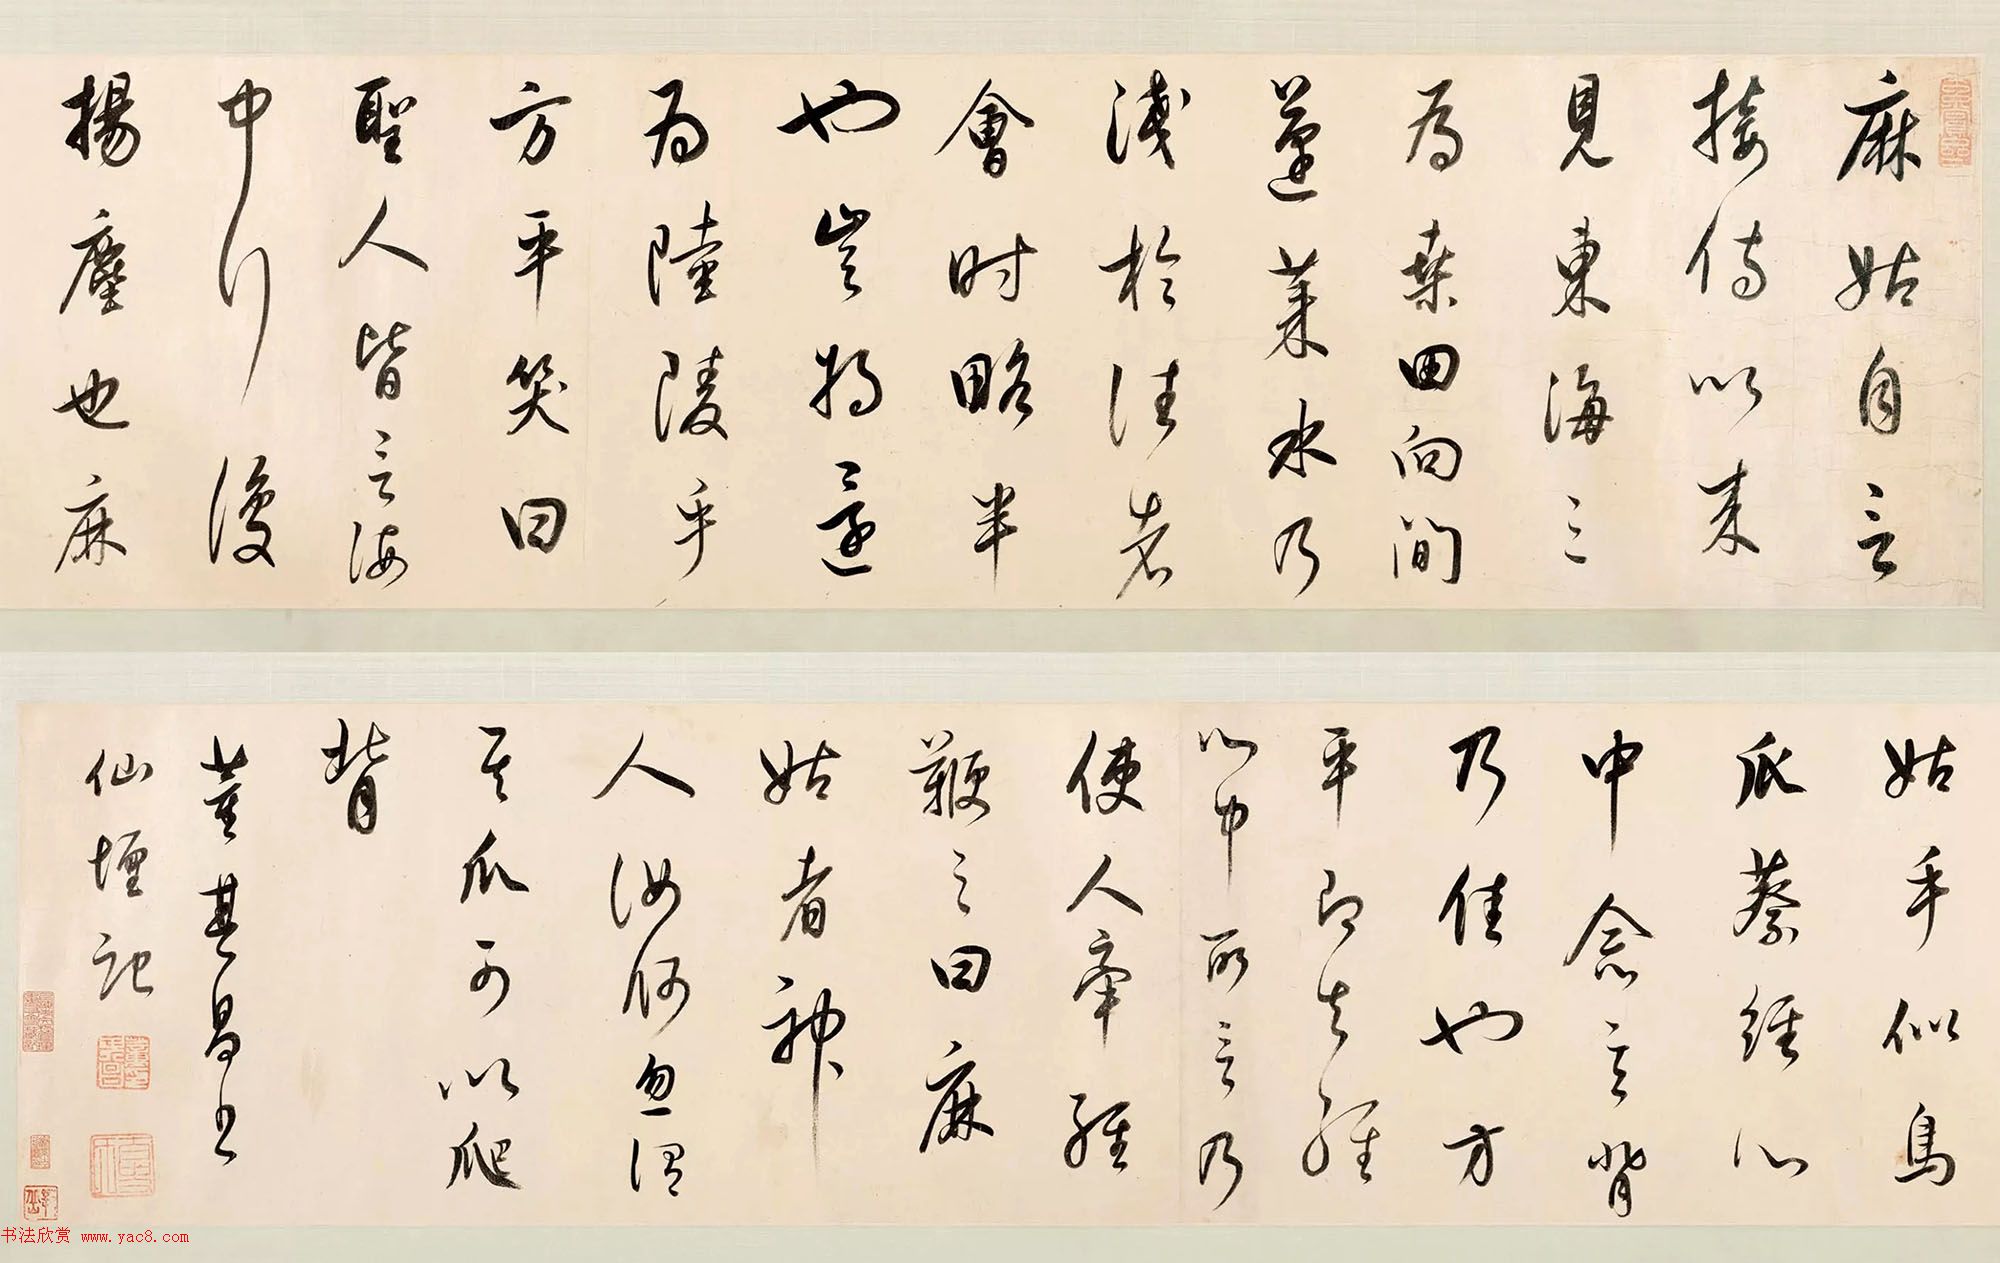 麻姑自言
接侍以来
見東海三
為桑田向間
蓬萊水乃
淺於往者
會时略半
也豈将還
为陸陵乎
方平笑曰
聖人皆言海
中行復
揚塵也麻
姑手似鳥
爪蔡經心
中念言背
乃佳也方
平即知經
心中所言乃
使人牽經
鞭之曰麻
姑者神
人汝何忽謂
其爪可以爬
背
董其昌書
仙壇記
书法欣赏 www.yac8.com